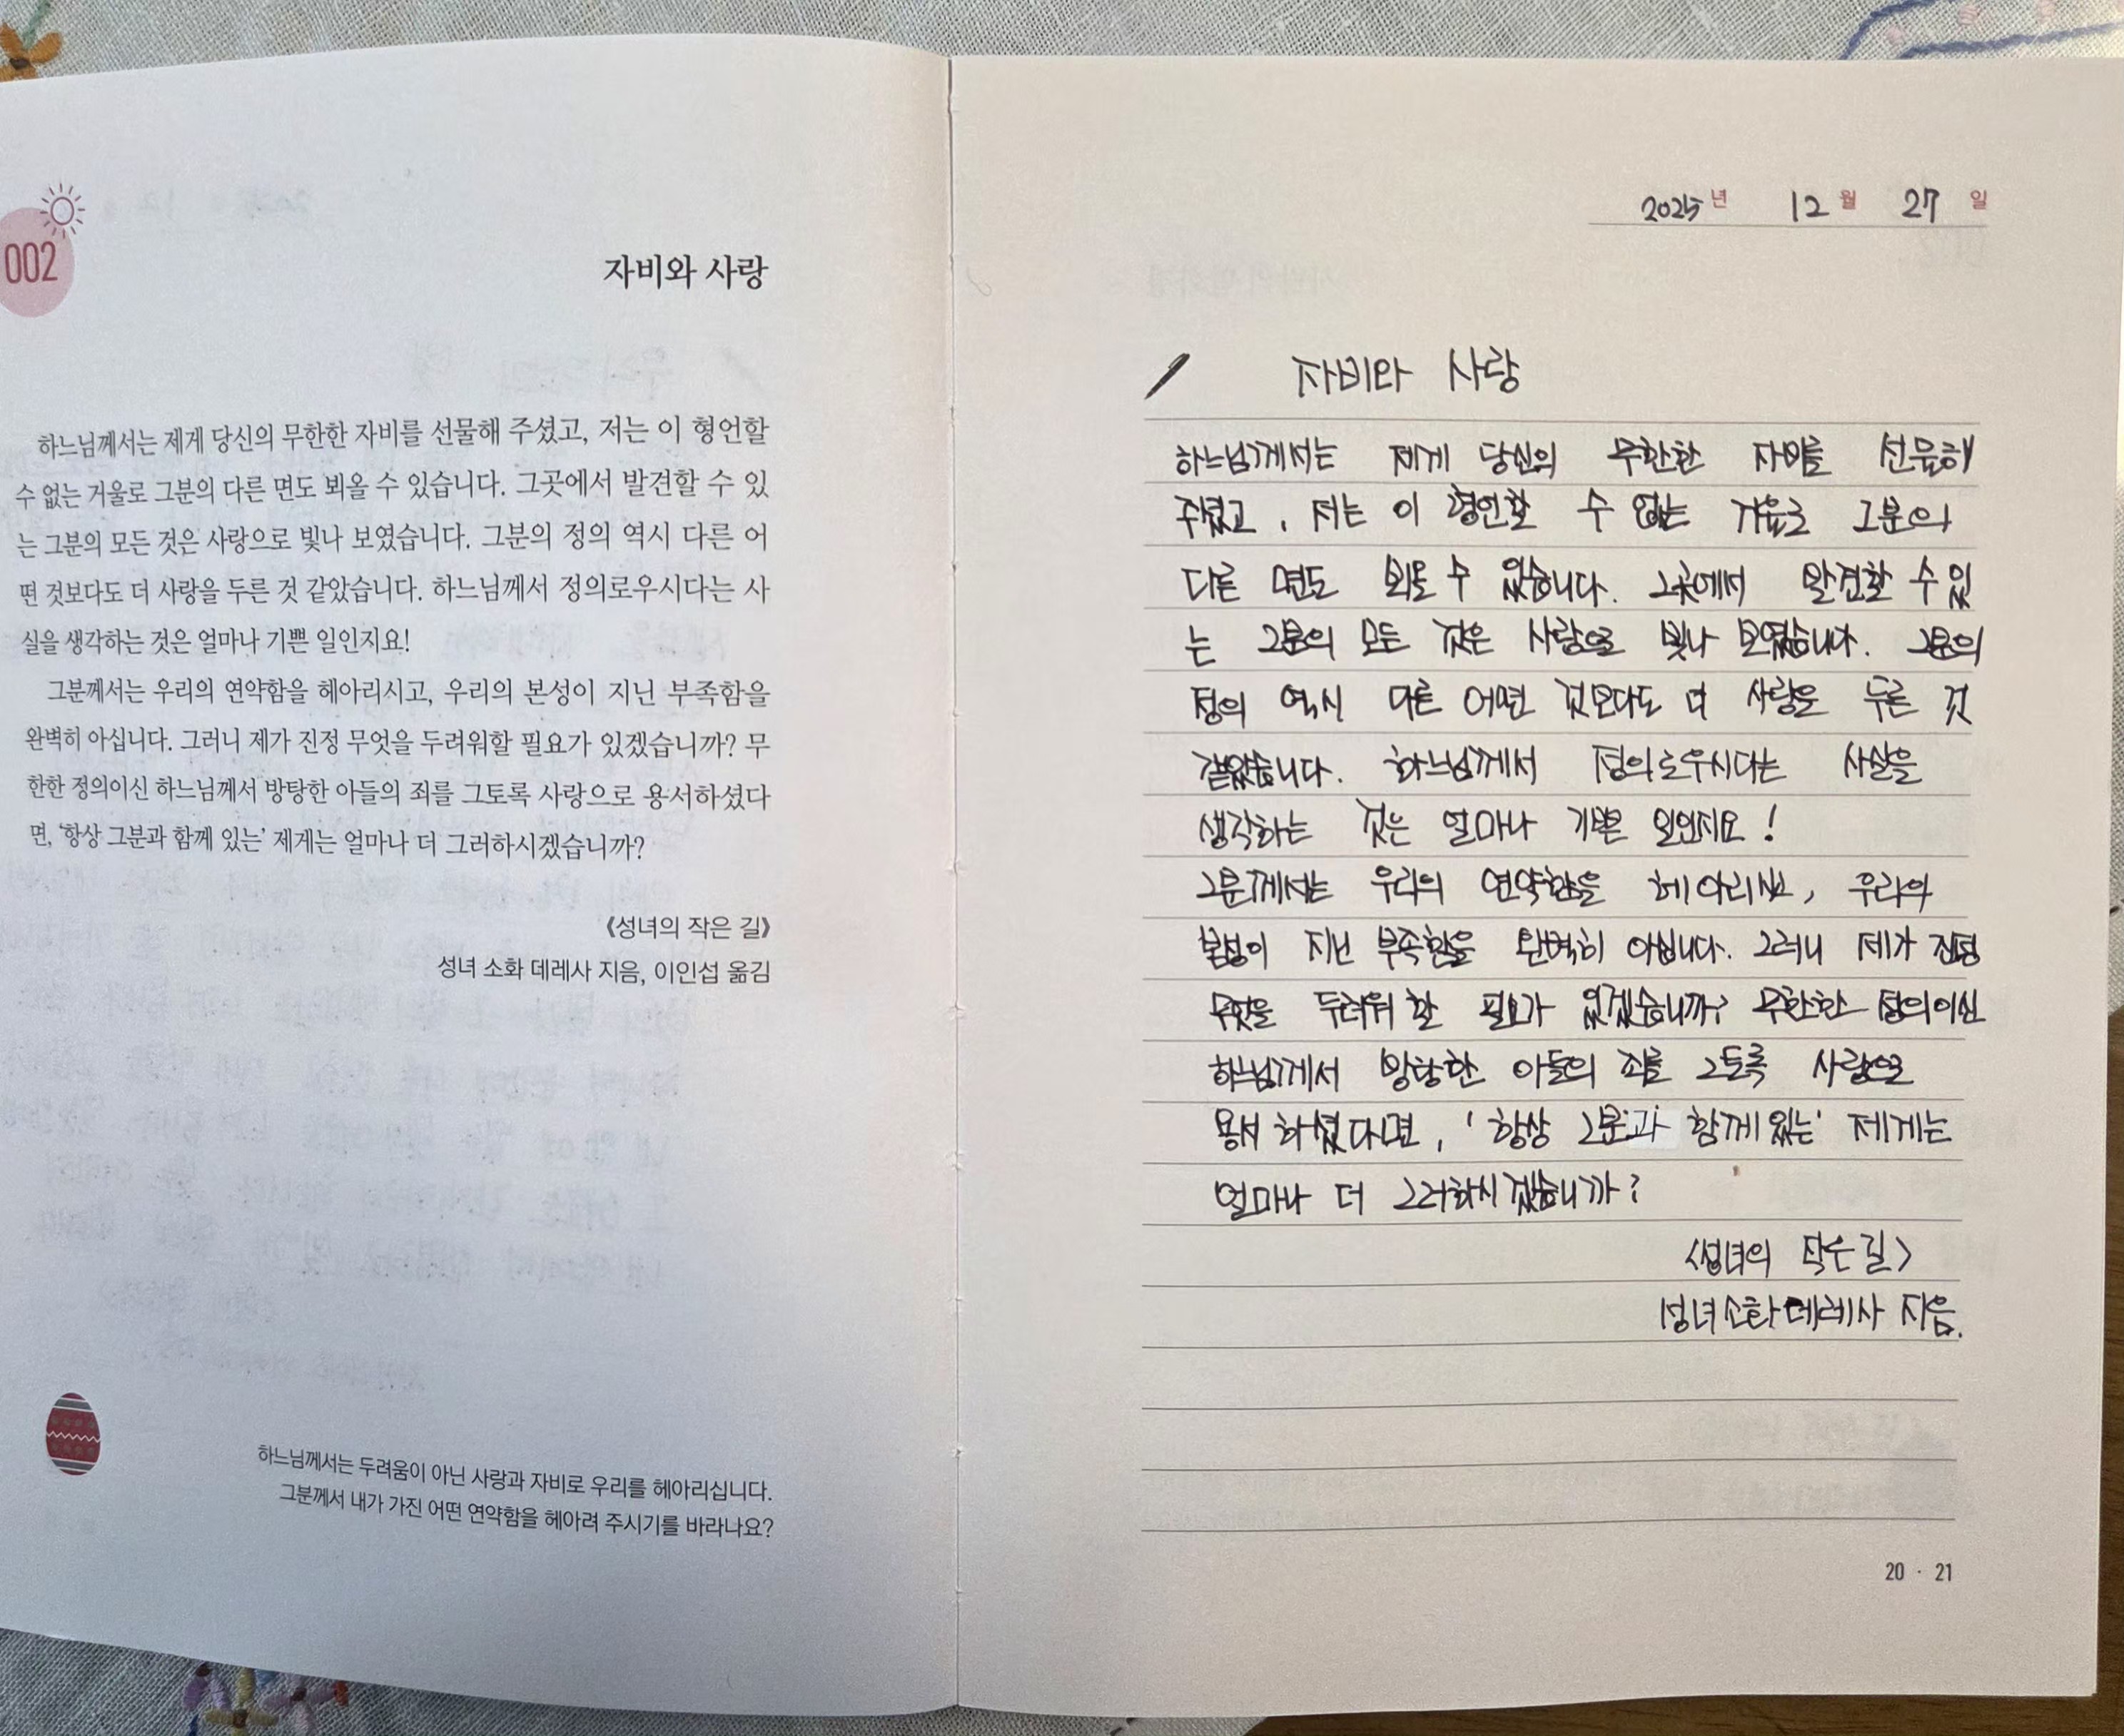 002
자비와 사랑
하느님께서는 제게 당신의 무한한 자비를 선물해 주셨고, 저는 이 형언할
수 없는 거울로 그분의 다른 면도 뵈올 수 있습니다. 그곳에서 발견할 수 있
는 그분의 모든 것은 사랑으로 빛나 보였습니다. 그분의 정의 역시 다른 어
떤 것보다도 더 사랑을 두른 것 같았습니다. 하느님께서 정의로우시다는 사
실을 생각하는 것은 얼마나 기쁜 일인지요!
그분께서는 우리의 연약함을 헤아리시고, 우리의 본성이 지닌 부족함을
완벽히 아십니다. 그러니 제가 진정 무엇을 두려워할 필요가 있겠습니까? 무
한한 정의이신 하느님께서 방탕한 아들의 죄를 그토록 사랑으로 용서하셨다
면, ‘항상 그분과 함께 있는’ 제게는 얼마나 더 그러하시겠습니까?
《성녀의 작은 길》
성녀 소화 데레사 지음, 이인섭 옮김
하느님께서는 두려움이 아닌 사랑과 자비로 우리를 헤아리십니다.
그분께서 내가 가진 어떤 연약함을 헤아려 주시기를 바라나요?
2025년 12월 27일
자비와 사랑
하느님께서는 제게 당신의 무한한 자비를 선물해
주셨고, 저는 이 형언할 수 없는 거울로 그분의
다른 면도 뵈올 수 있습니다. 그곳에서 발견할 수 있
는 그분의 모든 것은 사랑으로 빛나 보였습니다. 그분의
정의 역시 다른 어떤 것보다도 더 사랑을 두른 것
같았습니다. 하느님께서 정의로우시다는 사실을
생각하는 것은 얼마나 기쁜 일인지요!
그분께서는 우리의 연약함을 헤아리시고, 우리의
본성이 지닌 부족함을 완벽히 아십니다. 그러니 제가 진정
무엇을 두려워 할 필요가 있겠습니까? 무한한 정의이신
하느님께서 방탕한 아들의 죄를 그토록 사랑으로
용서 하셨다면, '항상 그분과 함께 있는' 제게는
얼마나 더 그러하시겠습니까?
<성녀의 작은 길>
성녀 소화 데레사 지음.
20 · 21